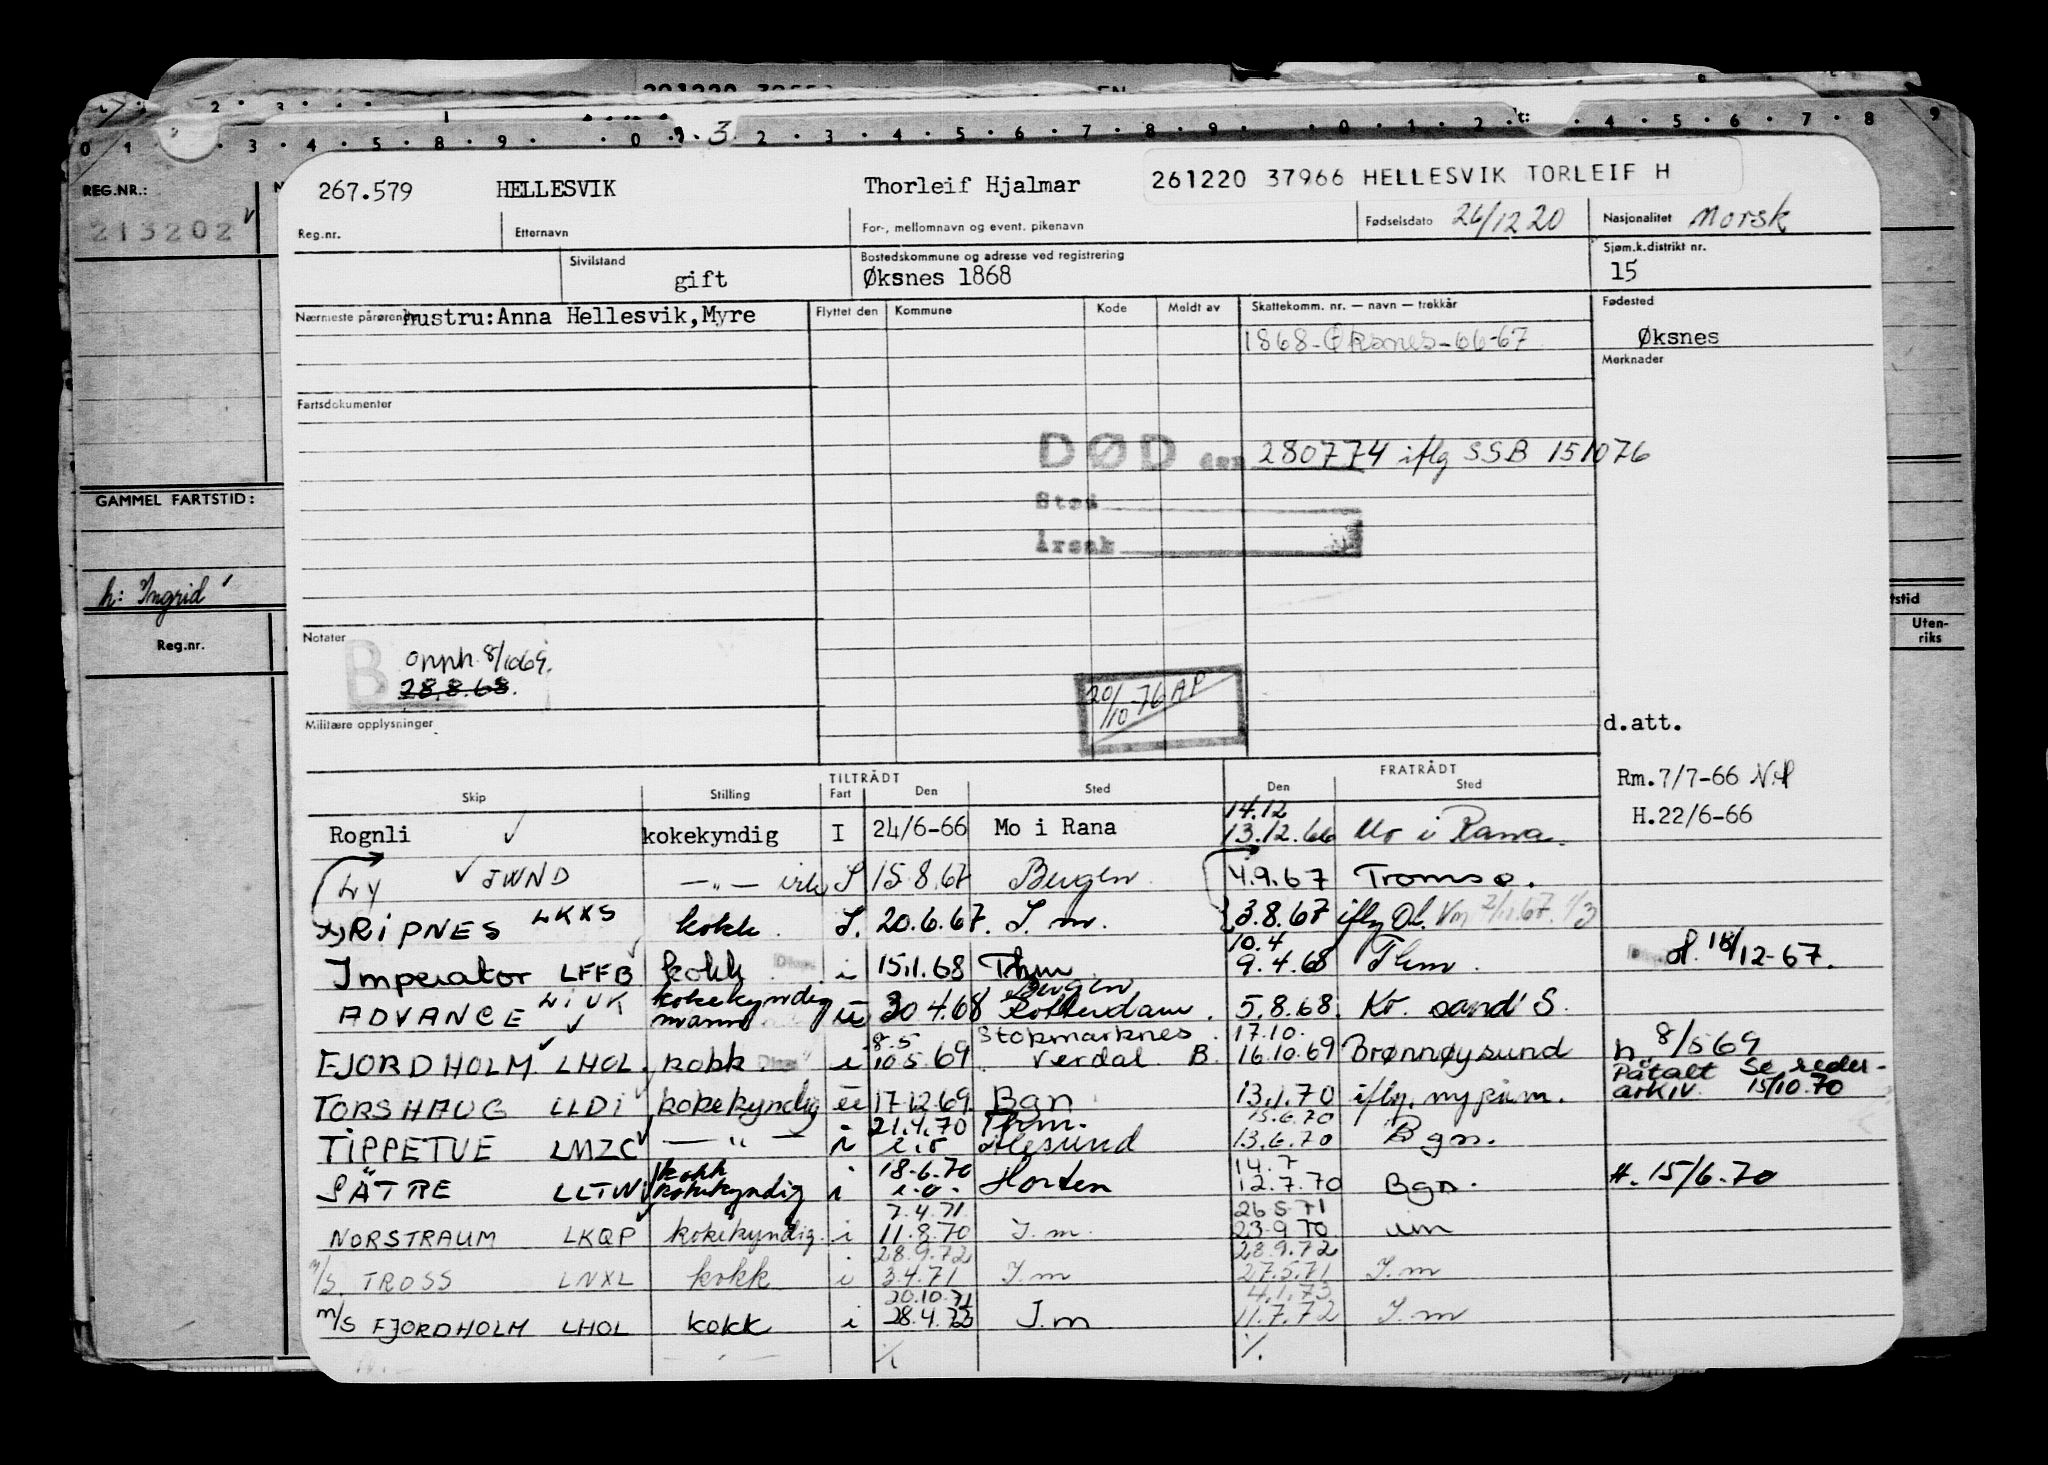 REG.NR.:
213202
GAMMEL FARTSTID:
h: Ingrid
Reg.nr.
267.579 HELLESVIK Thorleif Hjalmar 261220 37966 HELLESVIK TORLEIF H
Reg.nr. Etternavn For-, mellomnavn og event. pikenavn Fødselsdato 26/12 20 Nasjonalitet Norsk
Sivilstand gift Bostedskommune og adresse ved registrering Øksnes 1868 Sjøm.k.distrikt nr. 15
Nærmeste pårørende hustru:Anna Hellesvik,Myre Flyttet den Kommune Kode Meldt av Skattekomm. nr. — navn — trekkår Fødested
1868-Øksnes-66-67 Øksnes
Merknader
Fartsdokumenter
DØD den 280774 iflg SSB 151076
Sted
Årsak
Notater
B opph. 8/1069.
28.8.68.
20/10-76 AP
Militære opplysninger
d.att.
TILTRÅDT FRATRÅDT
Skip Stilling Fart Den Sted Den Sted
Rm.7/7-66
H.22/6-66
14.12
Rognli kokekyndig I 24/6-66 Mo i Rana 13.12.66 Mo i Rana.
Ly JWND —"— S 15.8.67 Bergen 4.9.67 Tromsø.
RIPNES LKXS kokk S. 20.6.67. I.m. 3.8.67 iflg
10.4
Imperator LFFB kokk i 15.1.68 Thm 9.4.68 Thm. H. 18/12-67.
kokekyndig Bergen
ADVANCE LIUK mann u 30 4.68 Rotterdam. 5.8.68. Kr. sand S.
8.5 Stokmarknes 17.10.
FJORDHOLM LHOL kokk i 10.5.69 Verdal B. 16.10.69 Brønnøysund h. 8/5 69
Påtalt Se rederarkiv. 15/10.70
TORSHAUG LLDI kokekyndig u 17.12.69. Bgn 13.1.70 iflg.
21.4.70 Thm. 15.6.70
TIPPETUE LMZC —"— i i.o Ålesund 13.6.70 Bgn.
kokk 18-6.70 14.7
SÄTRE LLTW kokekyndig i i.o. Horten 12.7.70 Bgn. H. 15/6.70
7.4.71 26 5 71
NORSTRAUM LKQP kokekyndig. i 11.8.70 I.m. 23.9.70 im
28.9.72 28.9.72
m/s TROSS LNXL kokk i 3.4.71 I.m 27.5.71 I.m
20.10.71 4.1.73
m/s FJORDHOLM LHOL kokk i 28.4.72 I.m 11.7.72 I.m
tstid
Uten-
riks